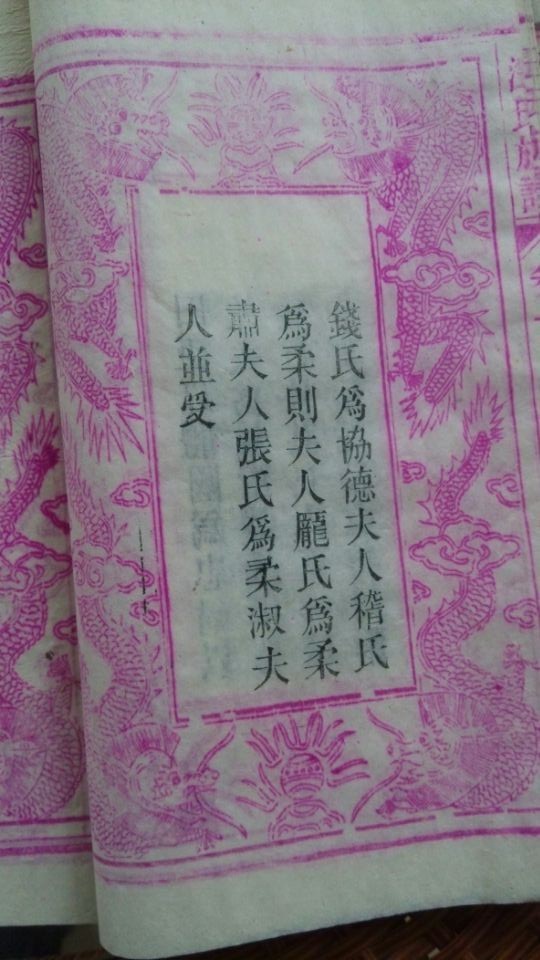 錢氏爲協德夫人稽氏
爲柔則夫人龎氏爲柔
肅夫人張氏爲柔淑夫
人並受
汪氏族譜